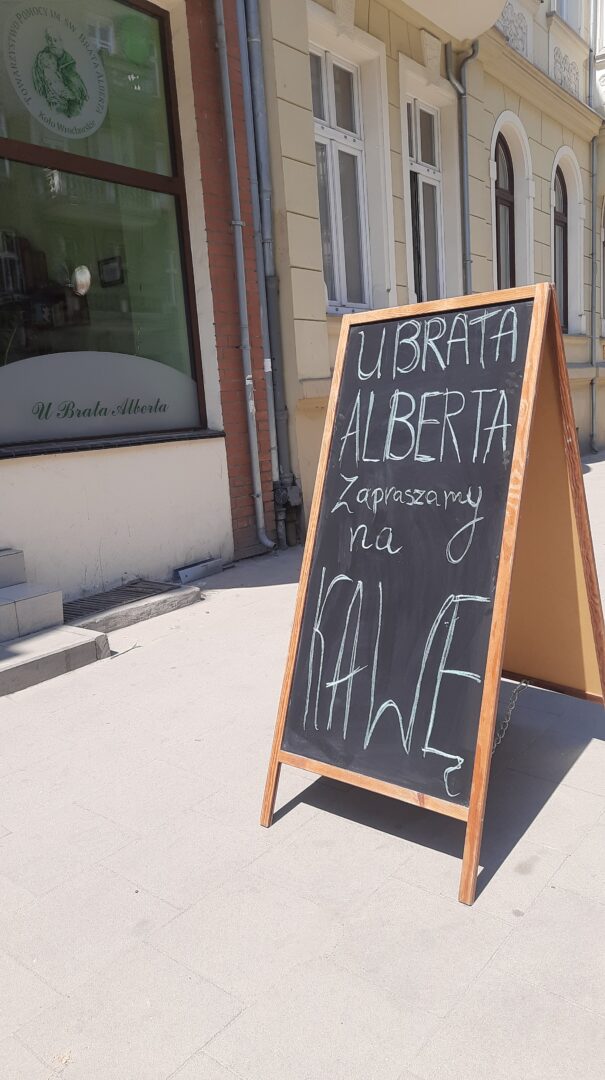 TOWARZYSTWO POMOCY IM. ŚW. BRATA ALBERTA
Koło Wrocławskie
U Brata Alberta
U BRATA
ALBERTA
Zapraszamy
na
KAWĘ